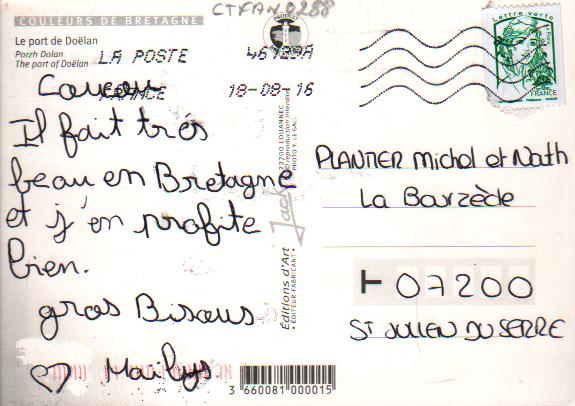 CTFAN 0288
COULEURS DE BRETAGNE
Le port de Doëlan
Porzh Dolan
The port of Doëlan
LA POSTE 46129A
FRANCE 18-08-16
Lettre verte
FRANCE
Coucou
Il fait très
beau en Bretagne
et j'en profite
bien.
gros Bisous
♡ Maïlys
PLANTIER Michel et Nath
La Barzède
07200
ST JULIEN DU SERRE
Jack
Editions d'Art
EDITEUR-FABRICANT
22700 LOUANNEC
reproduction interdite
PHOTO Y. LE GALL
3 660081 000015